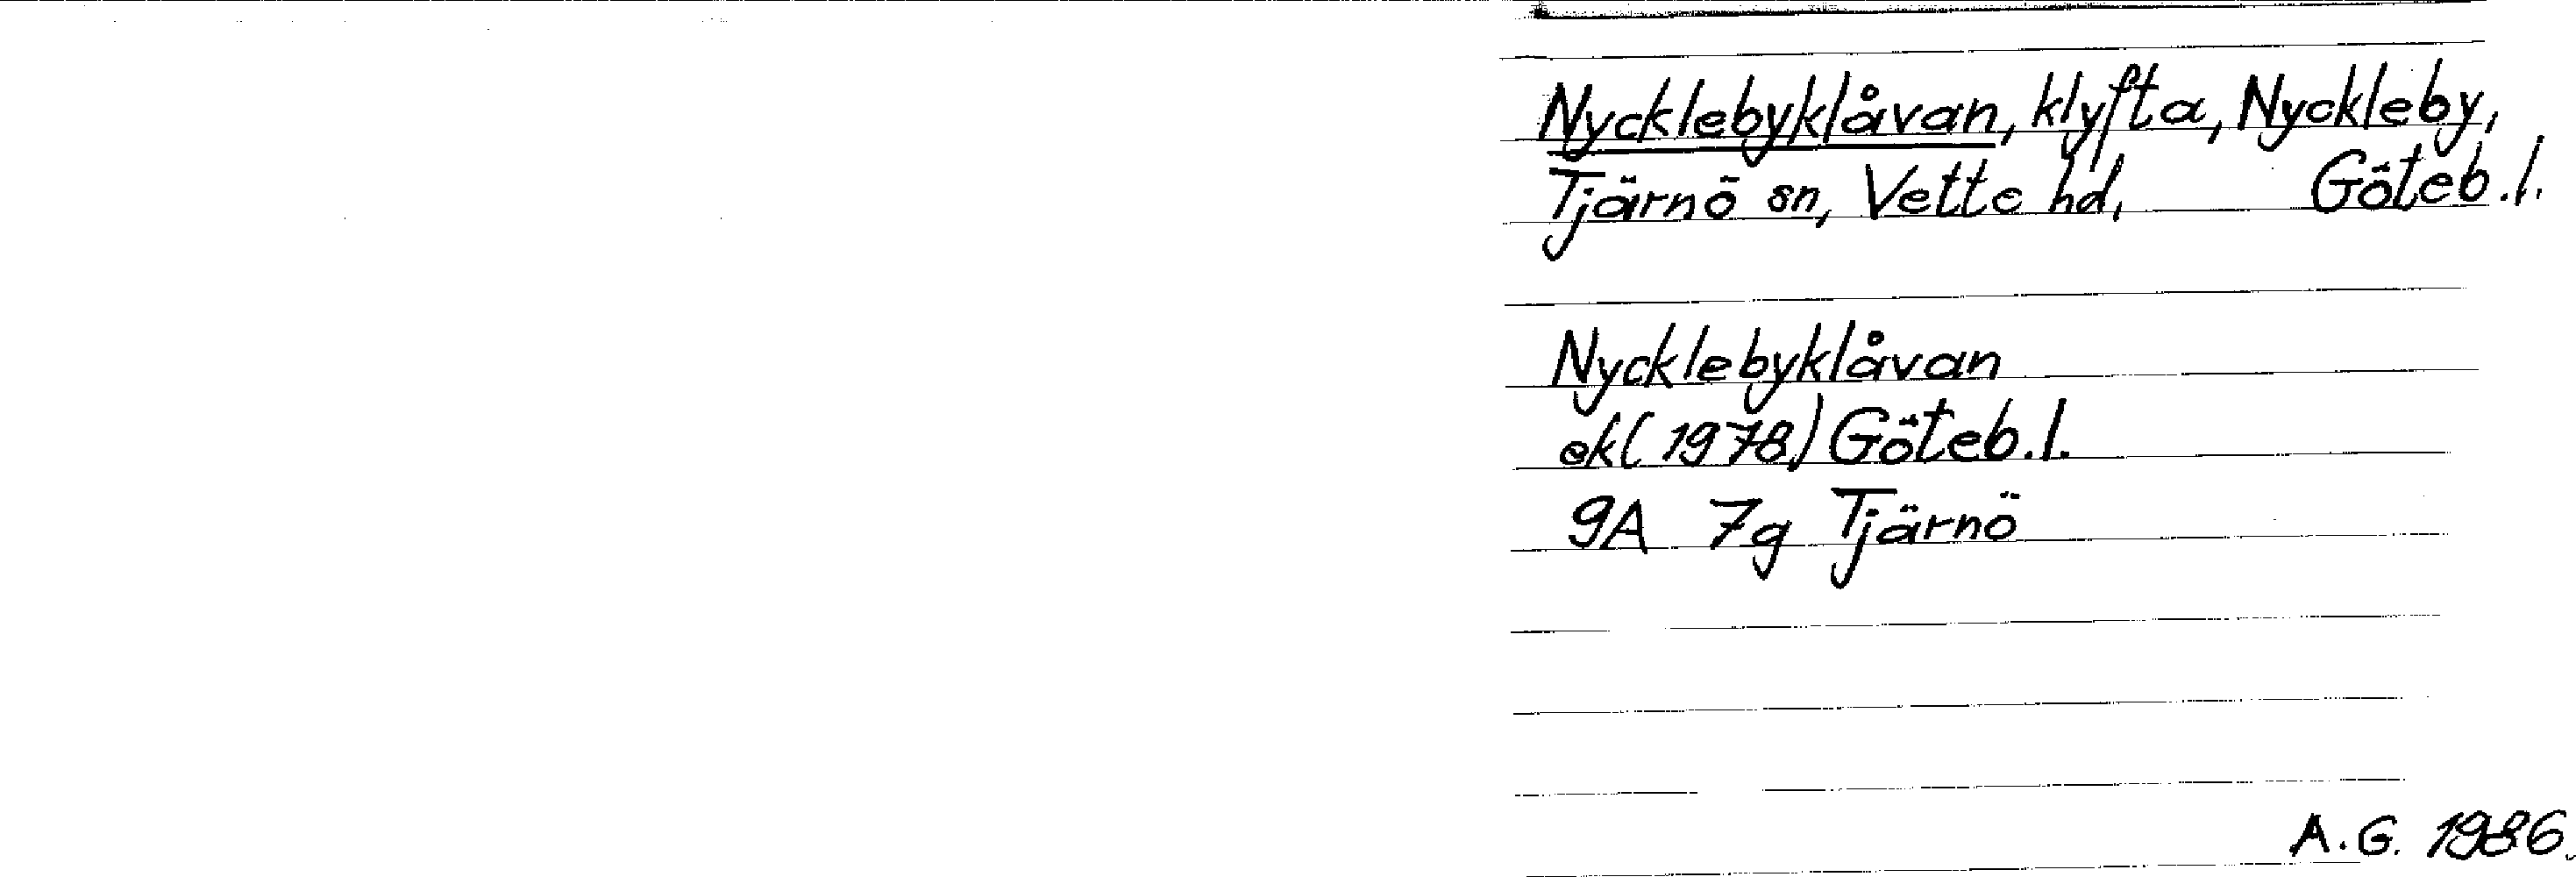 Nycklebyklåvan, klyfta, Nyckleby,
Tjärnö sn, Vette hd, Göteb.l.
Nycklebyklåvan
ek(1978) Göteb.l.
9A 7g Tjärnö
A.G. 1986.